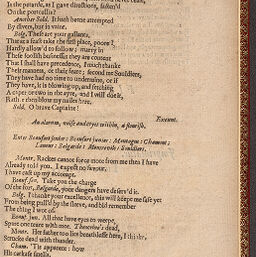 In the petarde, as I gave directions, fasten'd
On the portcullis?
Another Sold. It hath beene attempted
By divers, but in vaine.
Belg. These are your gallants,
That at a feast take the first place, poore I,
Hardly allow'd to follow: marry in
These foolish businesses they are content
That I shall have precedence, I much thanke
Their manners, or their feare; second me Souldiers,
They have had no time to undermine, or if
They have, it is blowing up, and fetching
A caper or two in the ayre, and I will doe it,
Rather then blow my nailes here.
Sold. O brave Captaine!
Exeunt.
An alarum, noise and cryes within, a flourish.
Enter Beaufort senior: Beaufort junior: Montaigne: Chamont:
Lanour: Belgarde: Montrevile: Souldiers.
Montr. Rackes cannot force more from me then I have
Already told you. I expect no favour,
I have cast up my accompt.
Beauf. sen. Take you the charge
Of the fort, Belgarde, your dangers have deserv'd it.
Belg. I thanke your excellence, this will keepe me safe yet
From being pull'd by the sleeve, and bid remember
The thing I wot of.
Beauf. jun. All that have eyes to weepe,
Spare one teare with mee. Theocrine's dead,
Montr. Her father too lies breathlesse here, I thinke,
Strucke dead with thunder.
Cham. 'Tis apparent: how
His carkase smells.